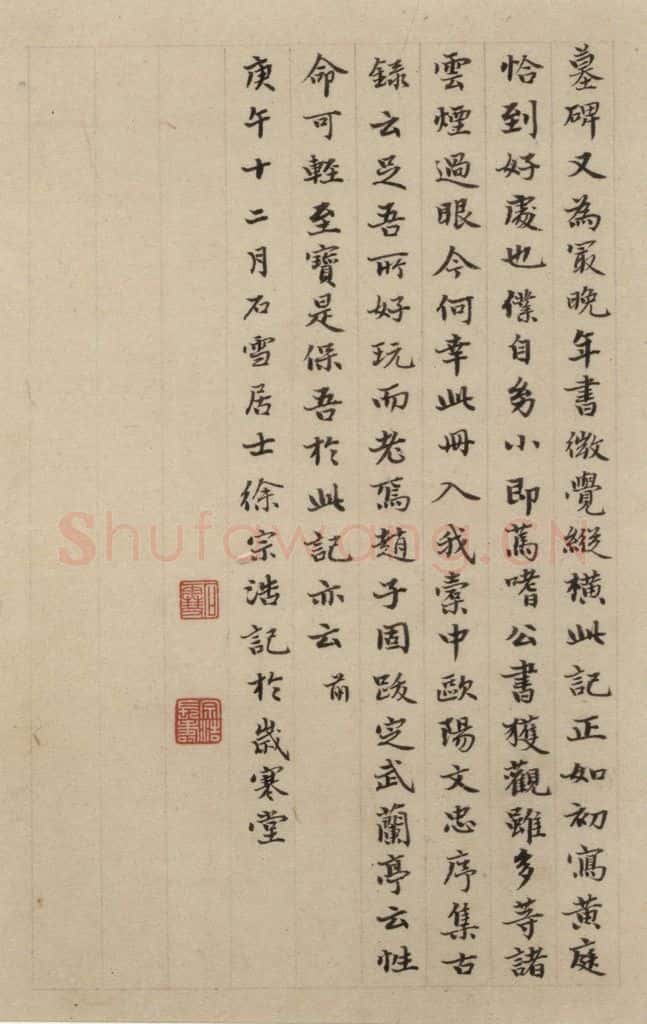 墓碑又為冣晚年書微覺縱橫此記正如初寫黃庭
恰到好處也僕自㓜小即篤嗜公書獲觀雖多等諸
雲煙過眼今何幸此冊入我橐中歐陽文忠序集古
錄云足吾所好玩而老焉趙子固跋定武蘭亭云性
命可輕至寶是保吾於此記亦云 前
庚午十二月石雪居士徐宗浩記於歲寒堂
石雪
宗浩長壽
Shufawang.CN